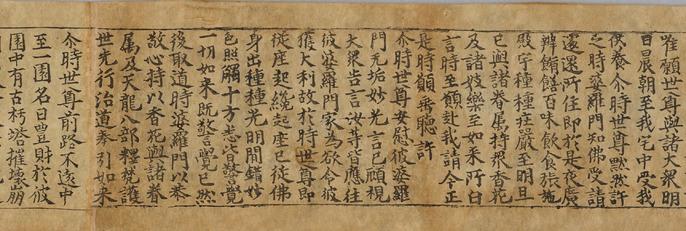 唯願世尊與諸大衆明
日晨朝至我宅中受我
供養尒時世尊默然許
之時婆羅門知佛受請
遽還所住即於是夜廣
辦餚饍百味飲食張施
殿宇種種莊嚴至明旦
已與諸眷属持衆香花
及諸妓樂至如來所白
言時至願赴我請今正
是時願垂聽許
尒時世尊安慰彼婆羅
門无垢妙光言已顧視
大衆告言汝等皆應往
彼婆羅門家為欲令彼
獲大利故於時世尊即
從座起纔起座已從佛
身出種種光明間錯妙
色照觸十方悉皆警覺
一切如來既警覺已然
後取道時婆羅門以恭
敬心持以香花與諸眷
属及天龍八部釋梵護
世先行治道奉引如來
尒時世尊前路不遠中
至一園名曰豊財於彼
園中有古朽塔摧壞崩